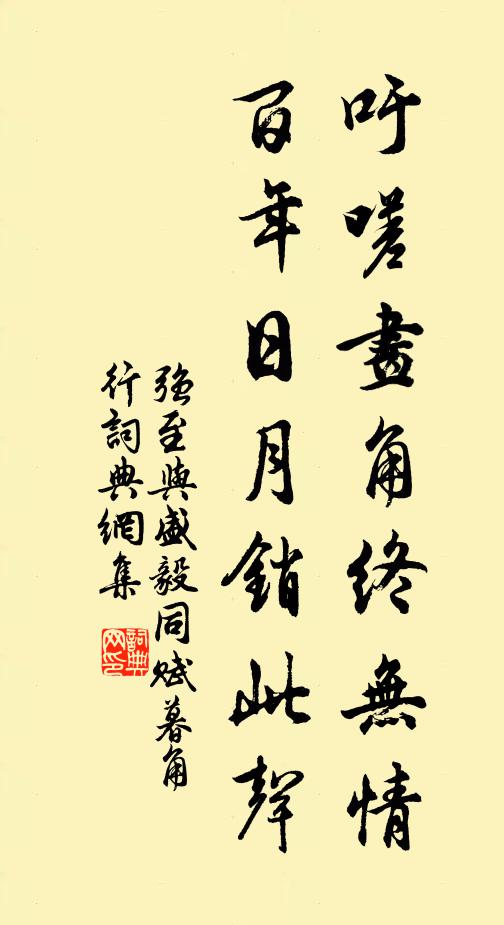 吁嗟畫角終無情
百年日月銷此聲
強至與盛毅同賦暮角
行詞典網集
詞典
网印